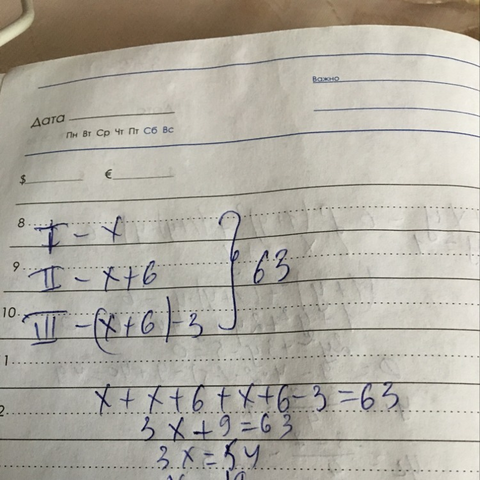 Важно
Дата
Пн Вт Ср Чт Пт Сб Вс
$ €
8 I - x
9 II - x+6
10 III - (x+6)-3
} 63
1
2 x + x + 6 + x + 6 - 3 = 63
3x + 9 = 63
3x = 54